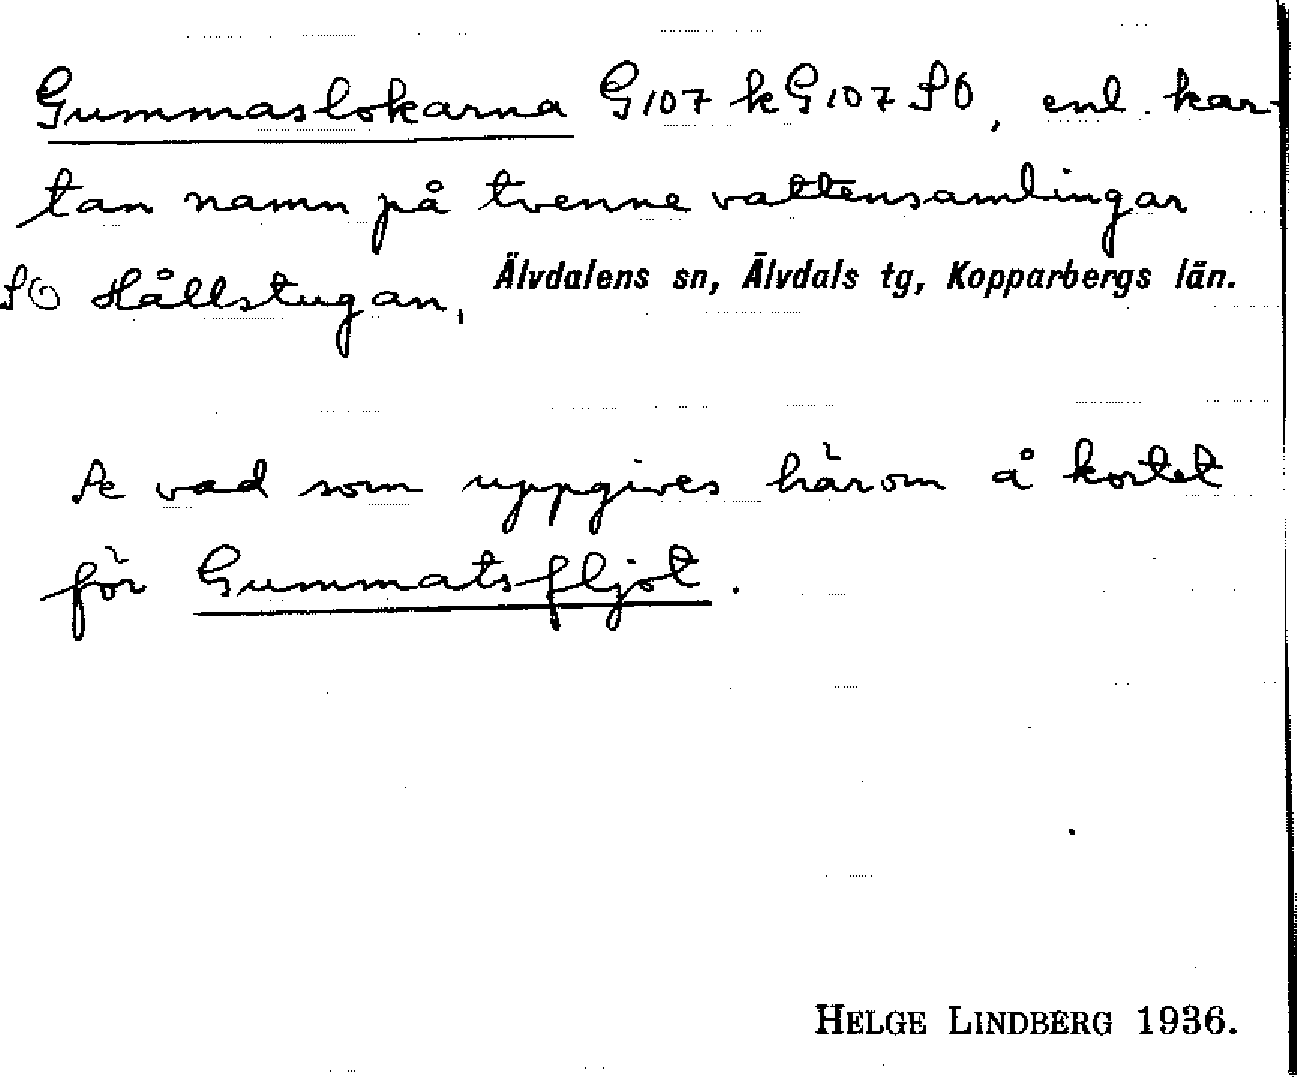 Gummaslokarna G107 k G107 SO, enl. kar-
tan namn på tvenne vattensamlingar
SO Hållstugan, Älvdalens sn, Älvdals tg, Kopparbergs län.
Se vad som uppgives härom å kortet
för Gummatsfljot.
HELGE LINDBERG 1936.